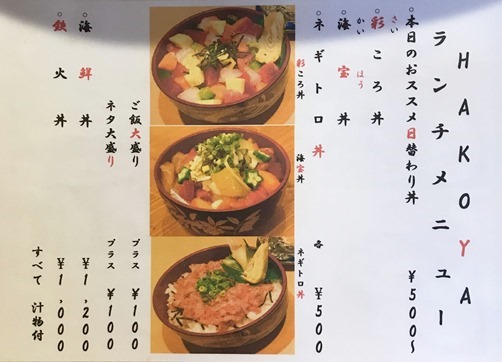 HAKOYA
ランチメニュー
○本日のおススメ日替わり丼 ¥500〜
○彩ころ丼
さい
○海宝丼
かい ほう
○ネギトロ丼 各¥500
彩ころ丼
海宝丼
ネギトロ丼
ご飯大盛り プラス¥100
ネタ大盛り プラス¥100
○海鮮丼 ¥1,200
○鉄火丼 ¥1,000
すべて汁物付